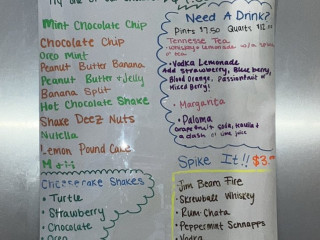 Mint Chocolate Chip
Chocolate Chip
Oreo Mint
Peanut Butter Banana
Peanut Butter + Jelly
Banana Split
Hot Chocolate Shake
Shake Deez Nuts
Nutella
Lemon Pound Cake
Cheesecake Shakes
• Turtle
• Strawberry
• Chocolate
Oreo
Need A Drink?
Pints $7.50 Quarts
Tennessee Tea
• Vodka Lemonade
Add Strawberry, Blueberry,
Blood Orange, Passionfruit or
Mixed Berry!
• Margarita
• Paloma
Grapefruit soda, tequila &
a dash of lime juice
Spike It!!
Jim Beam Fire
• Skrewball Whiskey
• Rum Chata
• Peppermint Schnapps
• Vodka